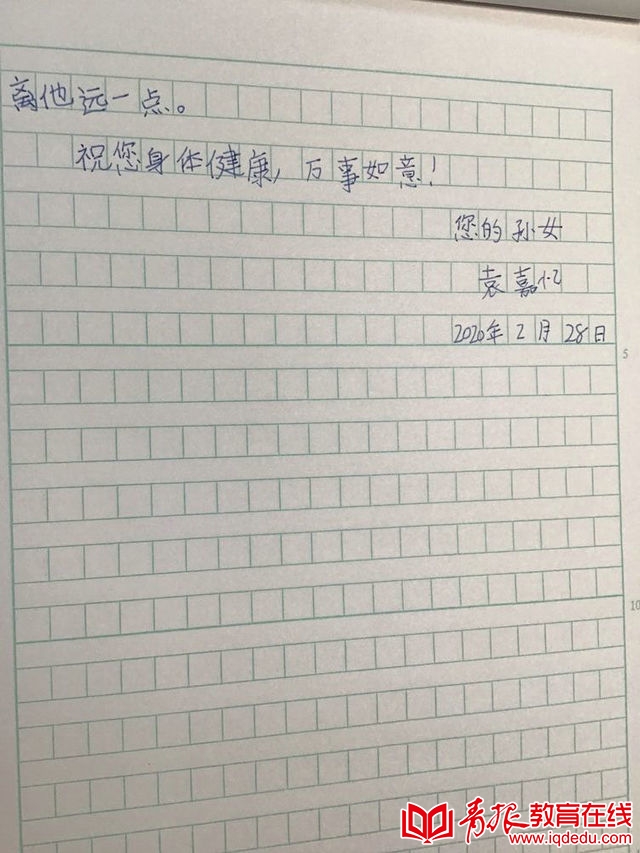 离他远一点。
祝您身体健康,万事如意!
您的孙女
袁嘉忆
2020年2月28日
5
10
青报教育在线
www.iqdedu.com